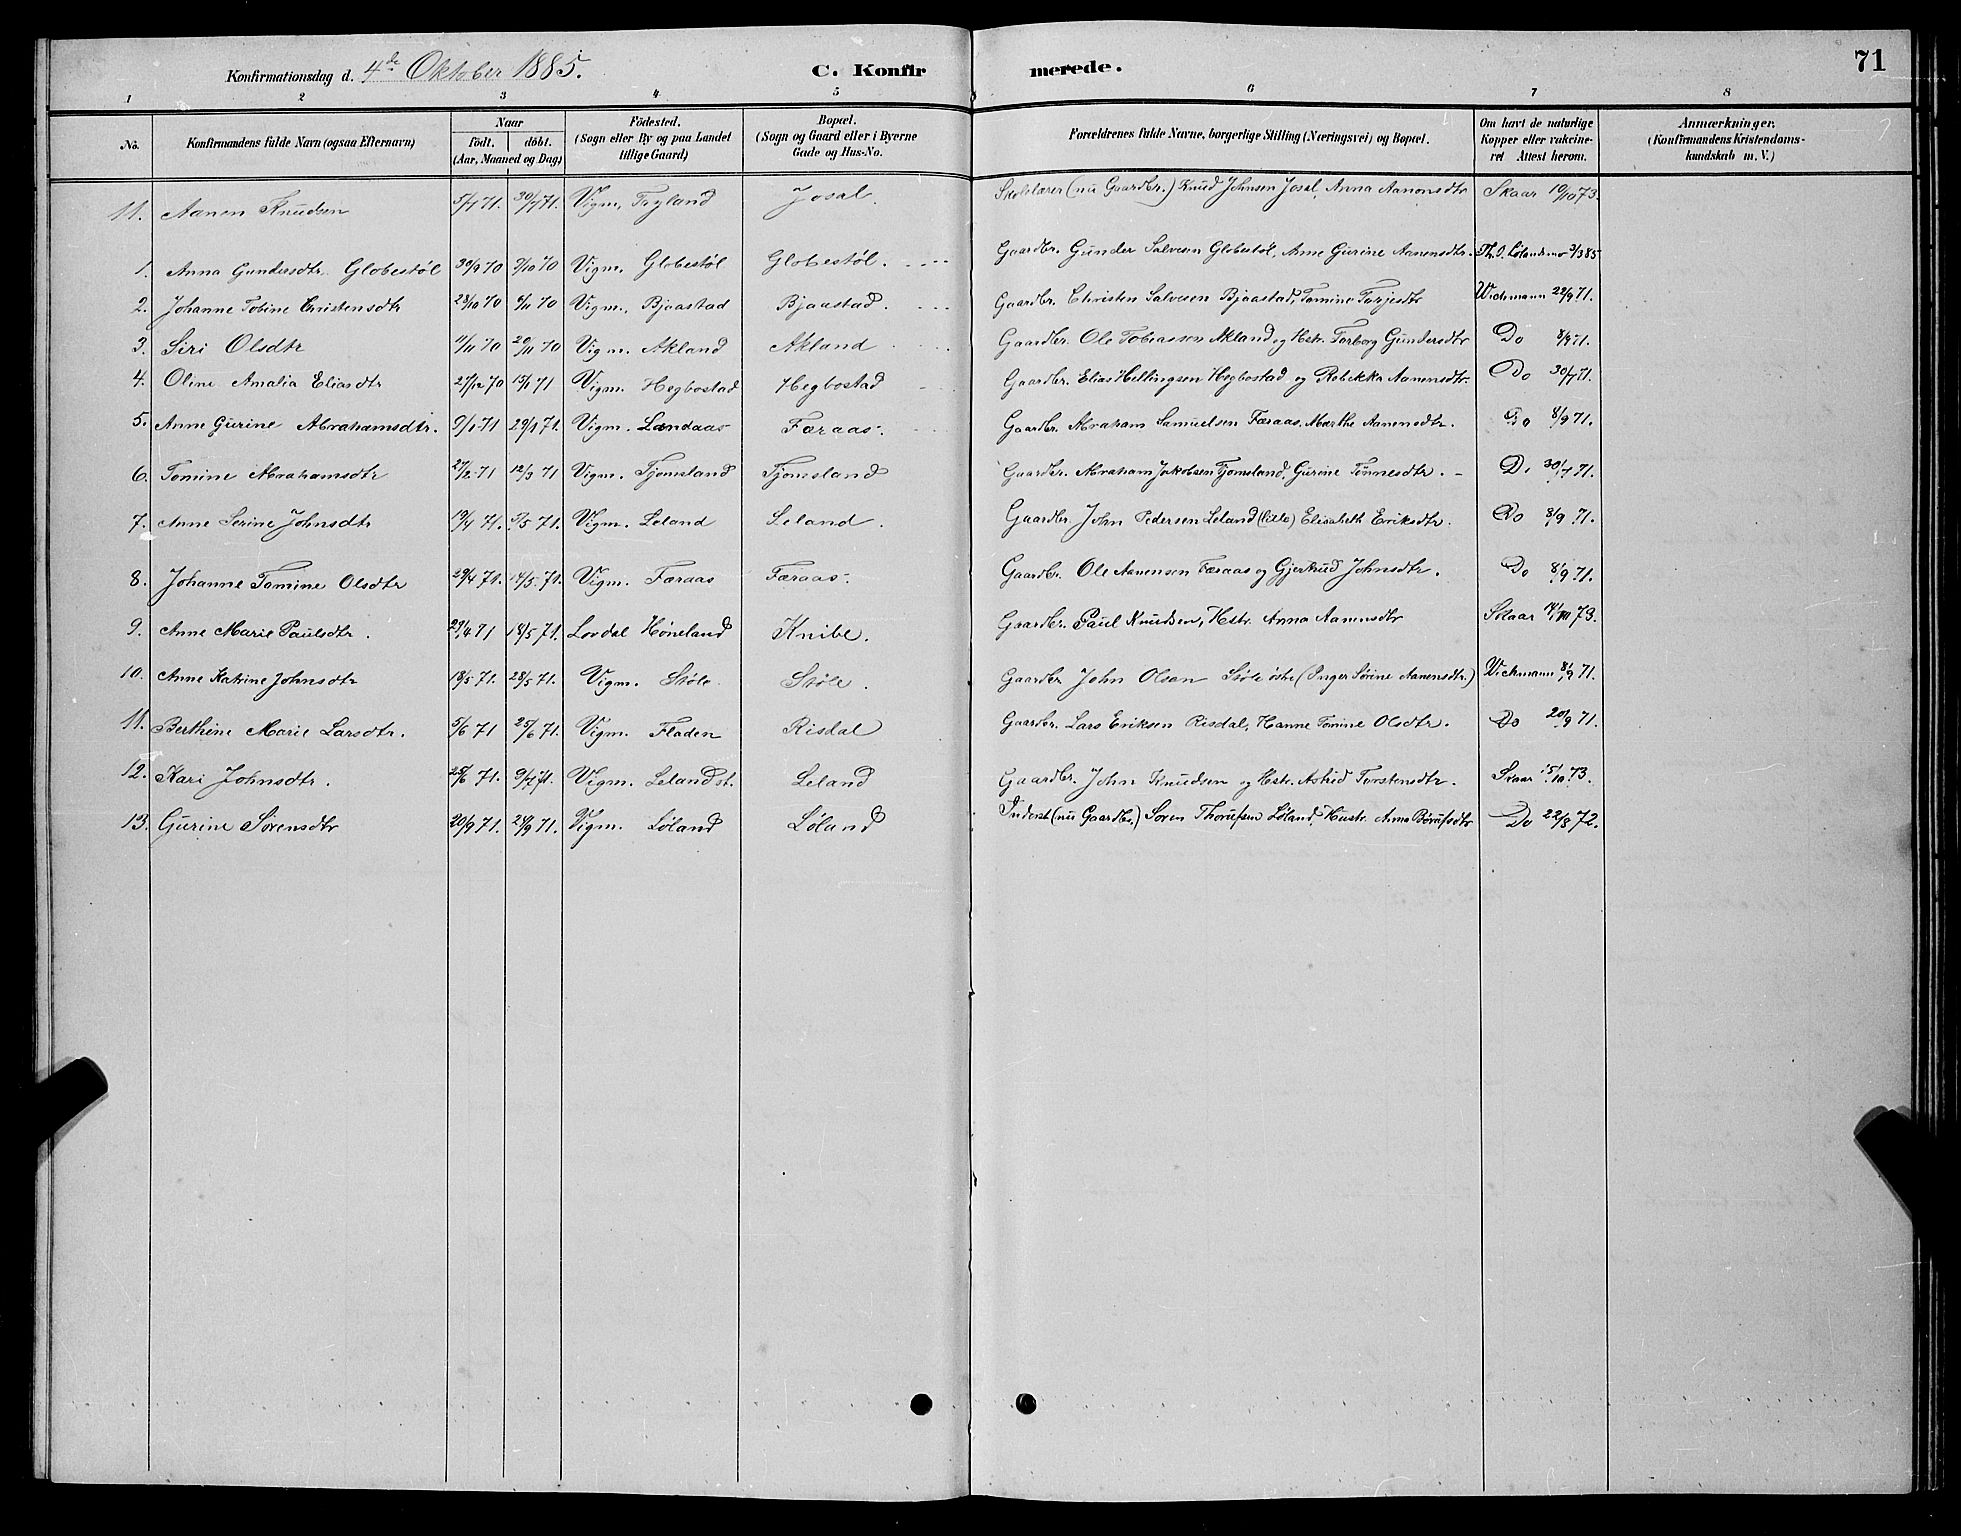 Konfirmationsdag d. 4de Oktober 1885. C. Konfirmerede. 71
1 2 3 4 5 6 7 8
No. Konfirmandens fulde Navn (ogsaa Efternavn) Naar födt, döbt. (Aar, Maaned og Dag) Födested. (Sogn eller By og paa Landet tillige Gaard) Bopæl. (Sogn og Gaard eller i Byerne Gade og Hus-No. Forældrenes fulde Navne, borgerlige Stilling (Næringsvei) og Bopæl. Om havt de naturlige Kopper eller vakcineret Attest herom. Anmærkninger. (Konfirmandens Kristendomskundskab m. V.)
11. Aanen Knudsen 5/1 71. 30/7 71. Vigm. Tryland Josal. Skolelærer (nu Gaardbr.) Knud Johnsen Josal, Anna Aanonsdtr Skaar 19/10 73.
1. Anna Gundersdtr Globestöl 30/9 70 9/10 70 Vigm. Globestöl Globestöl. Gaardbr. Gunder Salvesen Globestöl, Anne Gurine Aanensdtr. Th. O. Lölandsmo 3/9 85
2. Johanne Tobine Christensdtr 23/10 70 6/11 70 Vigm. Bjaastad Bjaastad. Gaardbr. Christen Salvesen Bjaastad, Tomine Torjesdtr Wichmann 22/9 71.
3. Siri Olsdtr 11/11 70 20/11 70 Vigm. Akland Akland Gaardbr. Ole Tobiassen Akland og Hstr. Torborg Gundersdtr Do 8/9 71.
4. Oline Amalia Eliasdtr 27/12 70 15/1 71 Vigm. Hegbostad Hegbostad Gaardbr. Elias Hellingsen Hegbostad og Rebekka Aanensdtr. Do 30/7 71.
5. Anne Gurine Abrahamsdtr. 9/1 71 29/1 71. Vigm. Landaas Færaas. Gaardbr. Abraham Samuelsen Færaas, Marthe Aanensdtr. Do 8/9 71.
6. Tomine Abrahamsdtr 27/2 71 12/3 71 Vigm. Tjomsland Tjomsland Gaardbr. Abraham Jakobsen Tjomsland, Gurine Tönnesdtr. Do 30/7 71.
7. Anne Serine Johnsdtr 19/4 71. 7/5 71. Vigm. Leland Leland. Gaardbr. John Pedersen Leland (lille) Elisabeth Eriksdtr. Do 8/9 71.
8. Johanne Tomine Olsdtr 29/4 71. 14/5 71. Vigm. Færaas Færaas. Gaardbr. Ole Aanensen Færaas og Gjertrud Johnsdtr. Do 8/9 71.
9. Anne Marie Paulsdtr. 29/4 71 18/5 71. Lovdal Höneland Knibe. Gaardbr. Paul Knudsen, Hstr. Anna Aanensdtr Skaar 14/10 73.
10. Anne Katrine Johnsdtr 18/5 71. 28/5 71. Vigm. Stöle Stöle. Gaardbr John Olsen Stöle östre (Inger Sörine Aanensdtr.) Wichmann 8/9 71.
11. Berthine Marie Larsdtr. 5/6 71 25/6 71. Vigm. Fladen Risdal Gaardbr. Lars Eriksen Risdal, Hanne Tomine Olsdtr. Do 20/9 71.
12. Kari Johnsdtr. 25/6 71. 9/7 71. Vigm. Leland st. Leland Gaardbr. John Knudsen og Hstr. Astrid Torstensdtr. Skaar 15/10 73.
13. Gurine Sörensdtr 20/9 71. 24/9 71. Vigm. Löland Löland Inderst (nu Gaardbr.) Sören Löland, Hustr. Anna Do 22/8 72.